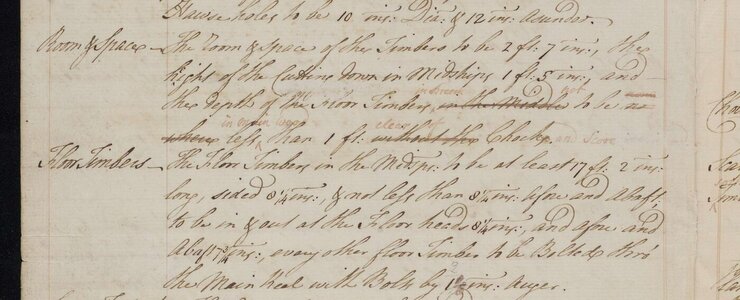 Hawse holes to be 10 ins: Dia: & 12 ins: asunder.
Room & Space — The Room & Space of the Timbers to be 2 ft: 7 ins:, the
hight of the Cutting down in Midships 1 ft: 5 ins:, and
the depth of the Floor Timbers in the Middle to be no
in any in
where less than 1 ft: without the Chocks and Score
clear of
Floor Timbers — The Floor Timbers in the Midsps: to be at least 17 ft: 2 ins:
long, sided 8 1/4 ins:, & not less than 8 1/4 ins: afore and abaft;
to be in & out at the Floor heads 8 1/4 ins:, and afore and
Abaft 7 3/4 ins:, every other floor Timber to be Bolted thro'
the Main Keel with Bolts by 1 ins: Auger.